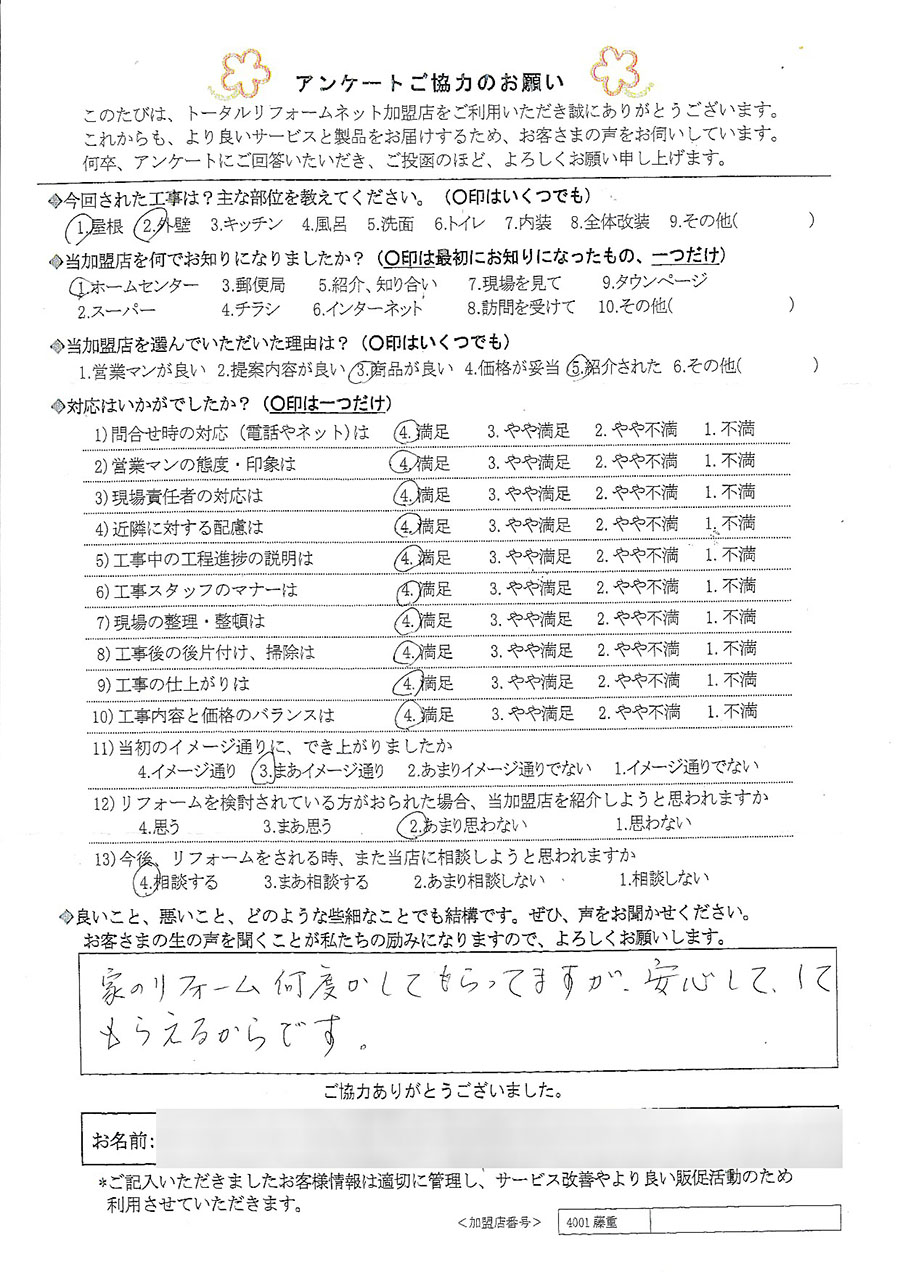 アンケートご協力のお願い
このたびは、トータルリフォームネット加盟店をご利用いただき誠にありがとうございます。
これからも、より良いサービスと製品をお届けするため、お客さまの声をお伺いしています。
何卒、アンケートにご回答いたいだき、ご投函のほど、よろしくお願い申し上げます。
◆今回された工事は？主な部位を教えてください。（〇印はいくつでも）
1.屋根 2.外壁 3.キッチン 4.風呂 5.洗面 6.トイレ 7.内装 8.全体改装 9.その他( )
◆当加盟店を何でお知りになりましたか？（〇印は最初にお知りになったもの、一つだけ）
1.ホームセンター 3.郵便局 5.紹介、知り合い 7.現場を見て 9.タウンページ
2.スーパー 4.チラシ 6.インターネット 8.訪問を受けて 10.その他( )
◆当加盟店を選んでいただいた理由は？（〇印はいくつでも）
1.営業マンが良い 2.提案内容が良い 3.商品が良い 4.価格が妥当 5.紹介された 6.その他( )
◆対応はいかがでしたか？（〇印は一つだけ）
1)問合せ時の対応（電話やネット)は 4.満足 3.やや満足 2.やや不満 1.不満
2)営業マンの態度・印象は 4.満足 3.やや満足 2.やや不満 1.不満
3)現場責任者の対応は 4.満足 3.やや満足 2.やや不満 1.不満
4)近隣に対する配慮は 4.満足 3.やや満足 2.やや不満 1.不満
5)工事中の工程進捗の説明は 4.満足 3.やや満足 2.やや不満 1.不満
6)工事スタッフのマナーは 4.満足 3.やや満足 2.やや不満 1.不満
7)現場の整理・整頓は 4.満足 3.やや満足 2.やや不満 1.不満
8)工事後の後片付け、掃除は 4.満足 3.やや満足 2.やや不満 1.不満
9)工事の仕上がりは 4.満足 3.やや満足 2.やや不満 1.不満
10)工事内容と価格のバランスは 4.満足 3.やや満足 2.やや不満 1.不満
11)当初のイメージ通りに、でき上がりましたか
4.イメージ通り 3.まあイメージ通り 2.あまりイメージ通りでない 1.イメージ通りでない
12)リフォームを検討されている方がおられた場合、当加盟店を紹介しようと思われますか
4.思う 3.まあ思う 2.あまり思わない 1.思わない
13)今後、リフォームをされる時、また当店に相談しようと思われますか
4.相談する 3.まあ相談する 2.あまり相談しない 1.相談しない
◆良いこと、悪いこと、どのような些細なことでも結構です。ぜひ、声をお聞かせください。
お客さまの生の声を聞くことが私たちの励みになりますので、よろしくお願いします。
家のリフォーム何度かしてもらってますが、安心して、して
もらえるからです。
ご協力ありがとうございました。
お名前:
*ご記入いただきましたお客様情報は適切に管理し、サービス改善やより良い販促活動のため
利用させていただきます。
＜加盟店番号＞ 4001 藤重